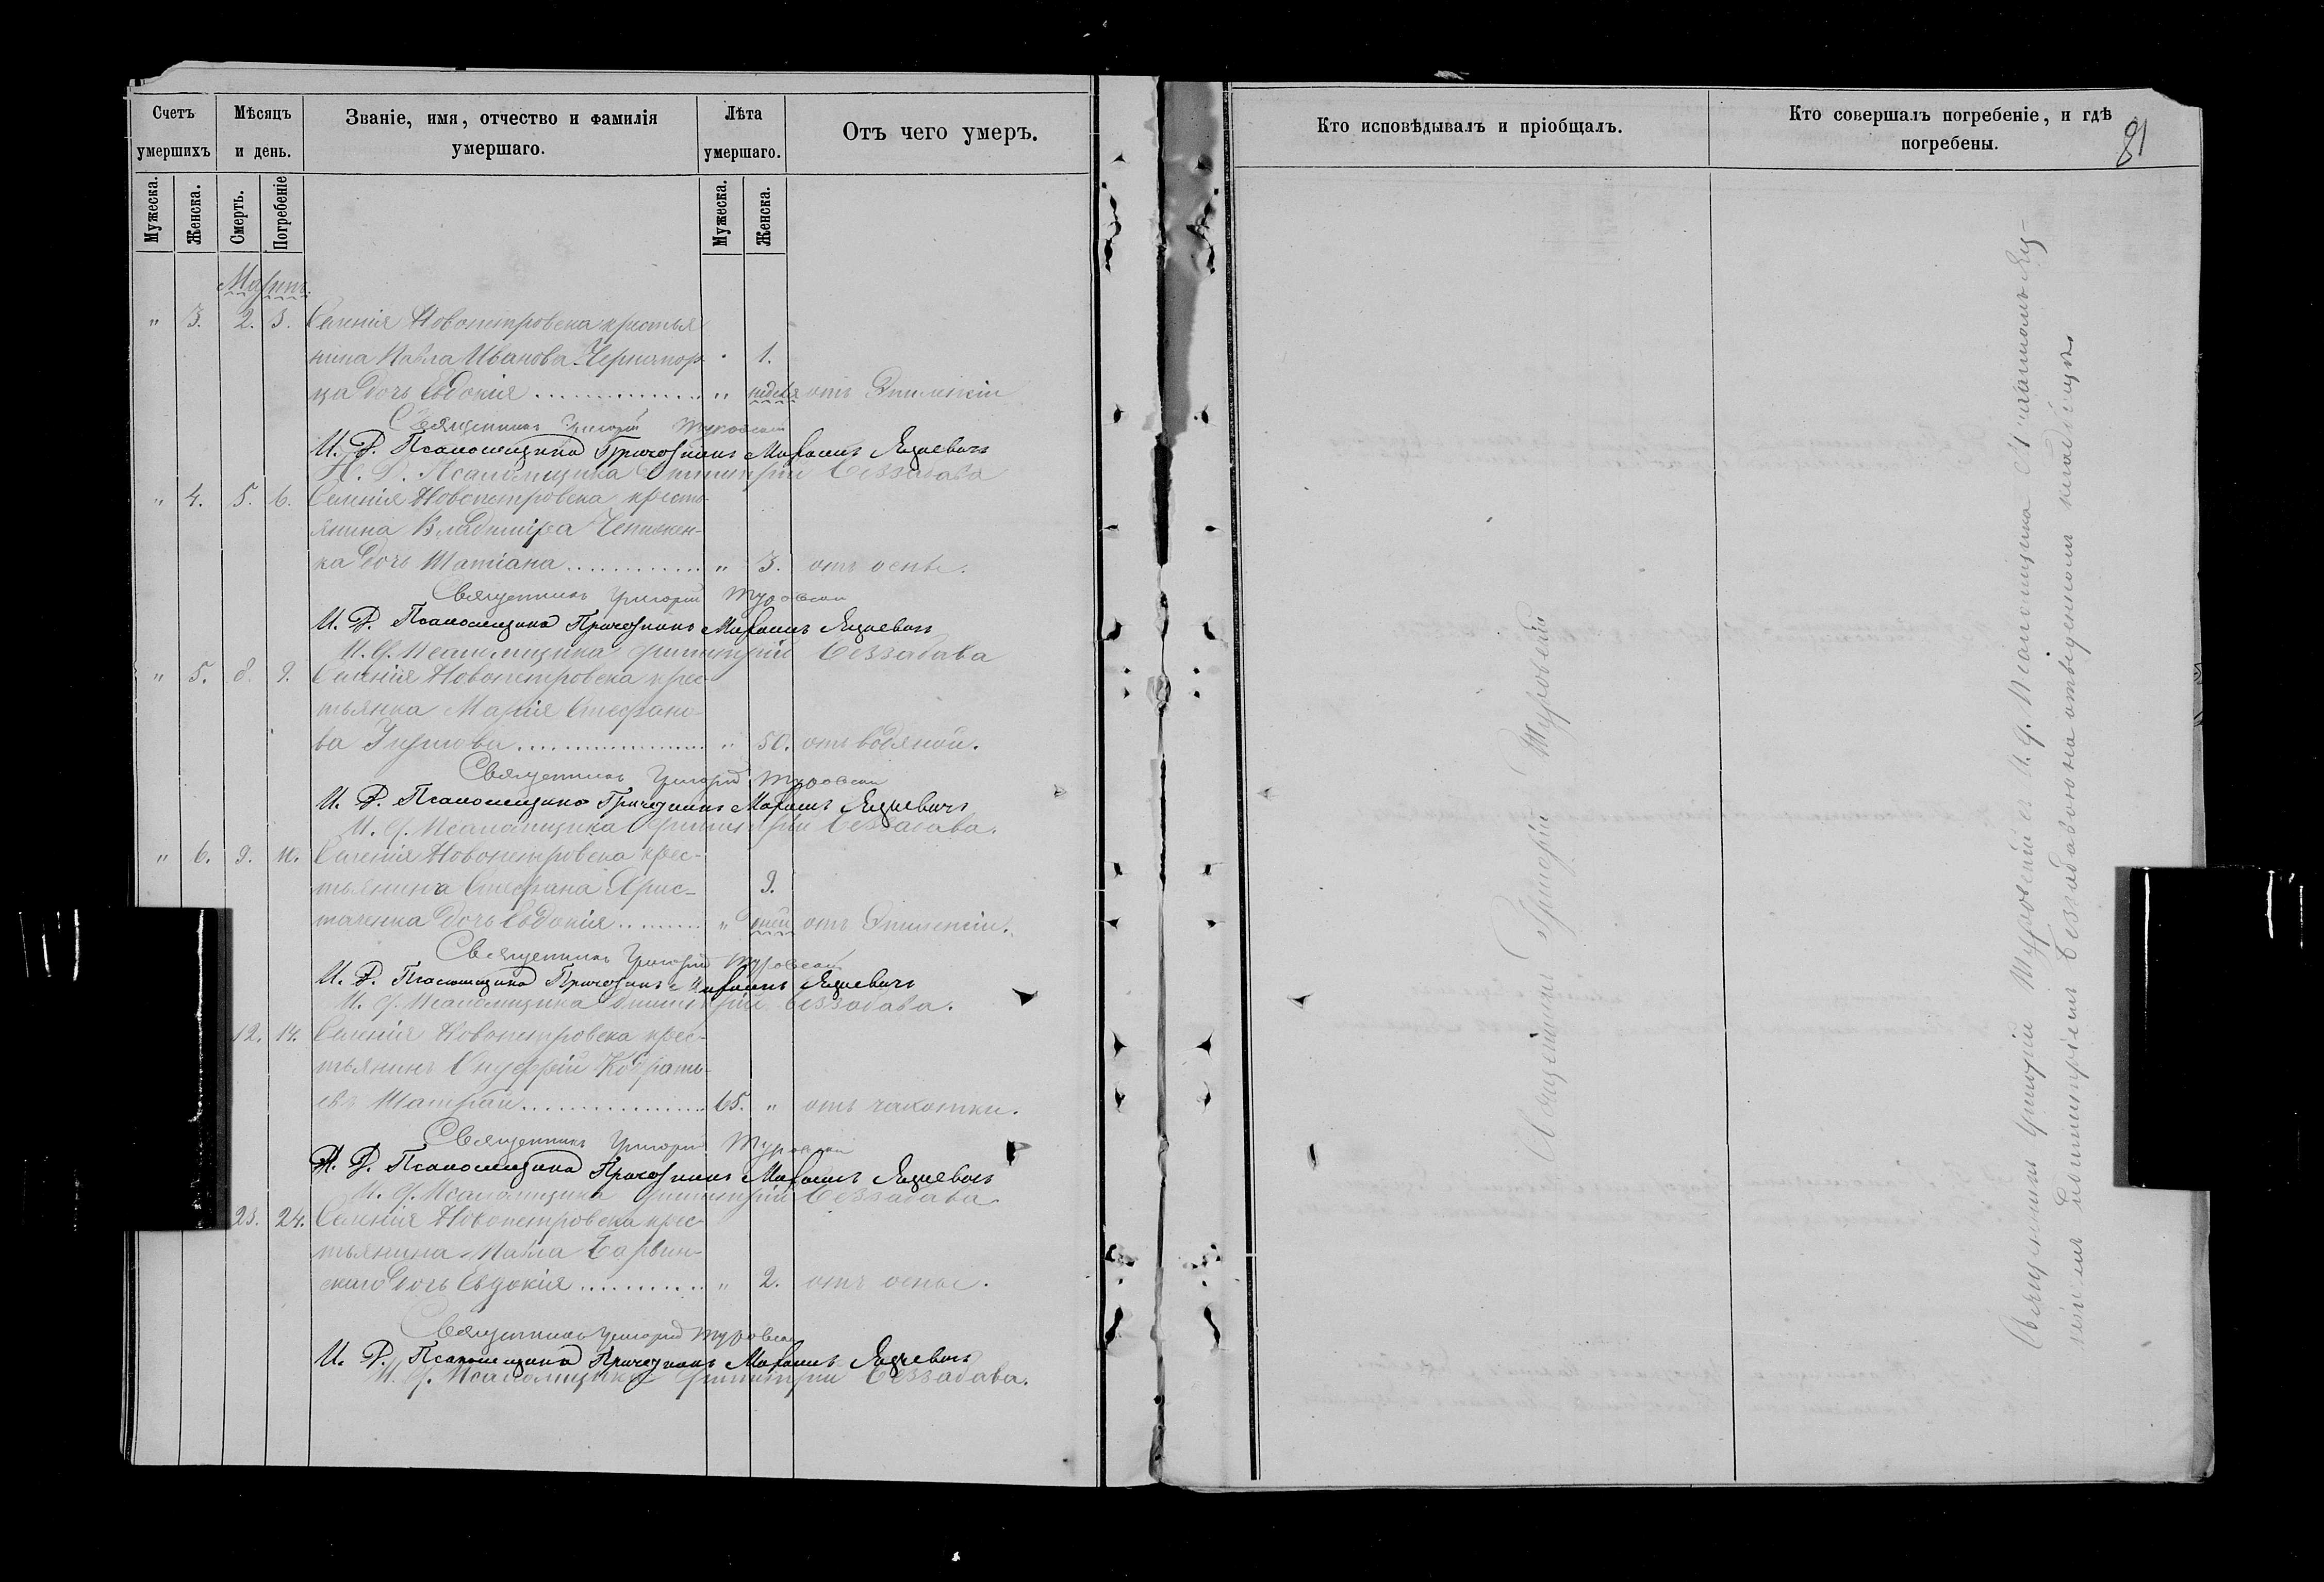 Счетъ умершихъ
Мѣсяцъ и день.
Званіе, имя, отчество и фамилія умершаго.
Лѣта умершаго.
Отъ чего умеръ.
Мужеска.
Женска.
Смерть.
Погребеніе
Мужеска.
Женска.
Мартъ.
" 3. 2. 3. Селенія Новопетровска крестья
нина Павла Иванова 1.
ца дочь Евдокія " недѣля отъ Эпилепсіи
Священникъ Григорій Туровскій
И. Д. Псаломщика Михаилъ Яцкевичъ
И. Д. Псаломщика Димитрій Беззабава
" 4. 5. 6. Селенія Новопетровска кресть
янина Владиміра
ка дочь Татіана " 3. отъ оспы.
Священникъ Григорій Туровскій
И. Д. Псаломщика Михаилъ Яцкевичъ
И. Д. Псаломщика Димитрій Беззабава
" 5. 8. 9. Селенія Новопетровска крес-
тьянка Марія Стефано-
ва " 50. отъ водяной.
Священникъ Григорій Туровскій
И. Д. Псаломщика Михаилъ Яцкевичъ
И. Д. Псаломщика Димитрій Беззабава.
" 6. 9. 11. Селенія Новопетровска крес-
тьянина Стефана Хрис- 9.
тиченка дочь Евдокія " дней отъ Эпилепсіи.
Священникъ Григорій Туровскій
И. Д. Псаломщика Михаилъ Яцкевичъ
И. Д. Псаломщика Димитрій Беззабава.
12. 14. Селенія Новопетровска крес-
тьянинъ Онуфрій Кодрать-
евъ 65. " отъ чахотки.
Священникъ Григорій Туровскій
И. Д. Псаломщика Михаилъ Яцкевичъ
И. Д. Псаломщика Димитрій Беззабава.
23. 24. Селенія Новопетровска крес-
тьянина Павла Барвин-
скаго дочь Евдокія " 2. отъ оспы.
Священникъ Григорій Туровскій
И. Д. Псаломщика Михаилъ Яцкевичъ
И. Д. Псаломщика Димитрій Беззабава.
Кто исповѣдывалъ и пріобщалъ.
Кто совершалъ погребеніе, и гдѣ погребены.
81
Священникъ Григорій Туровскій
Священникъ Григорій Туровскій съ И. Д. Псаломщика Михаиломъ Яц-
Димитріемъ Беззабавою на отведенномъ кладбищѣ.